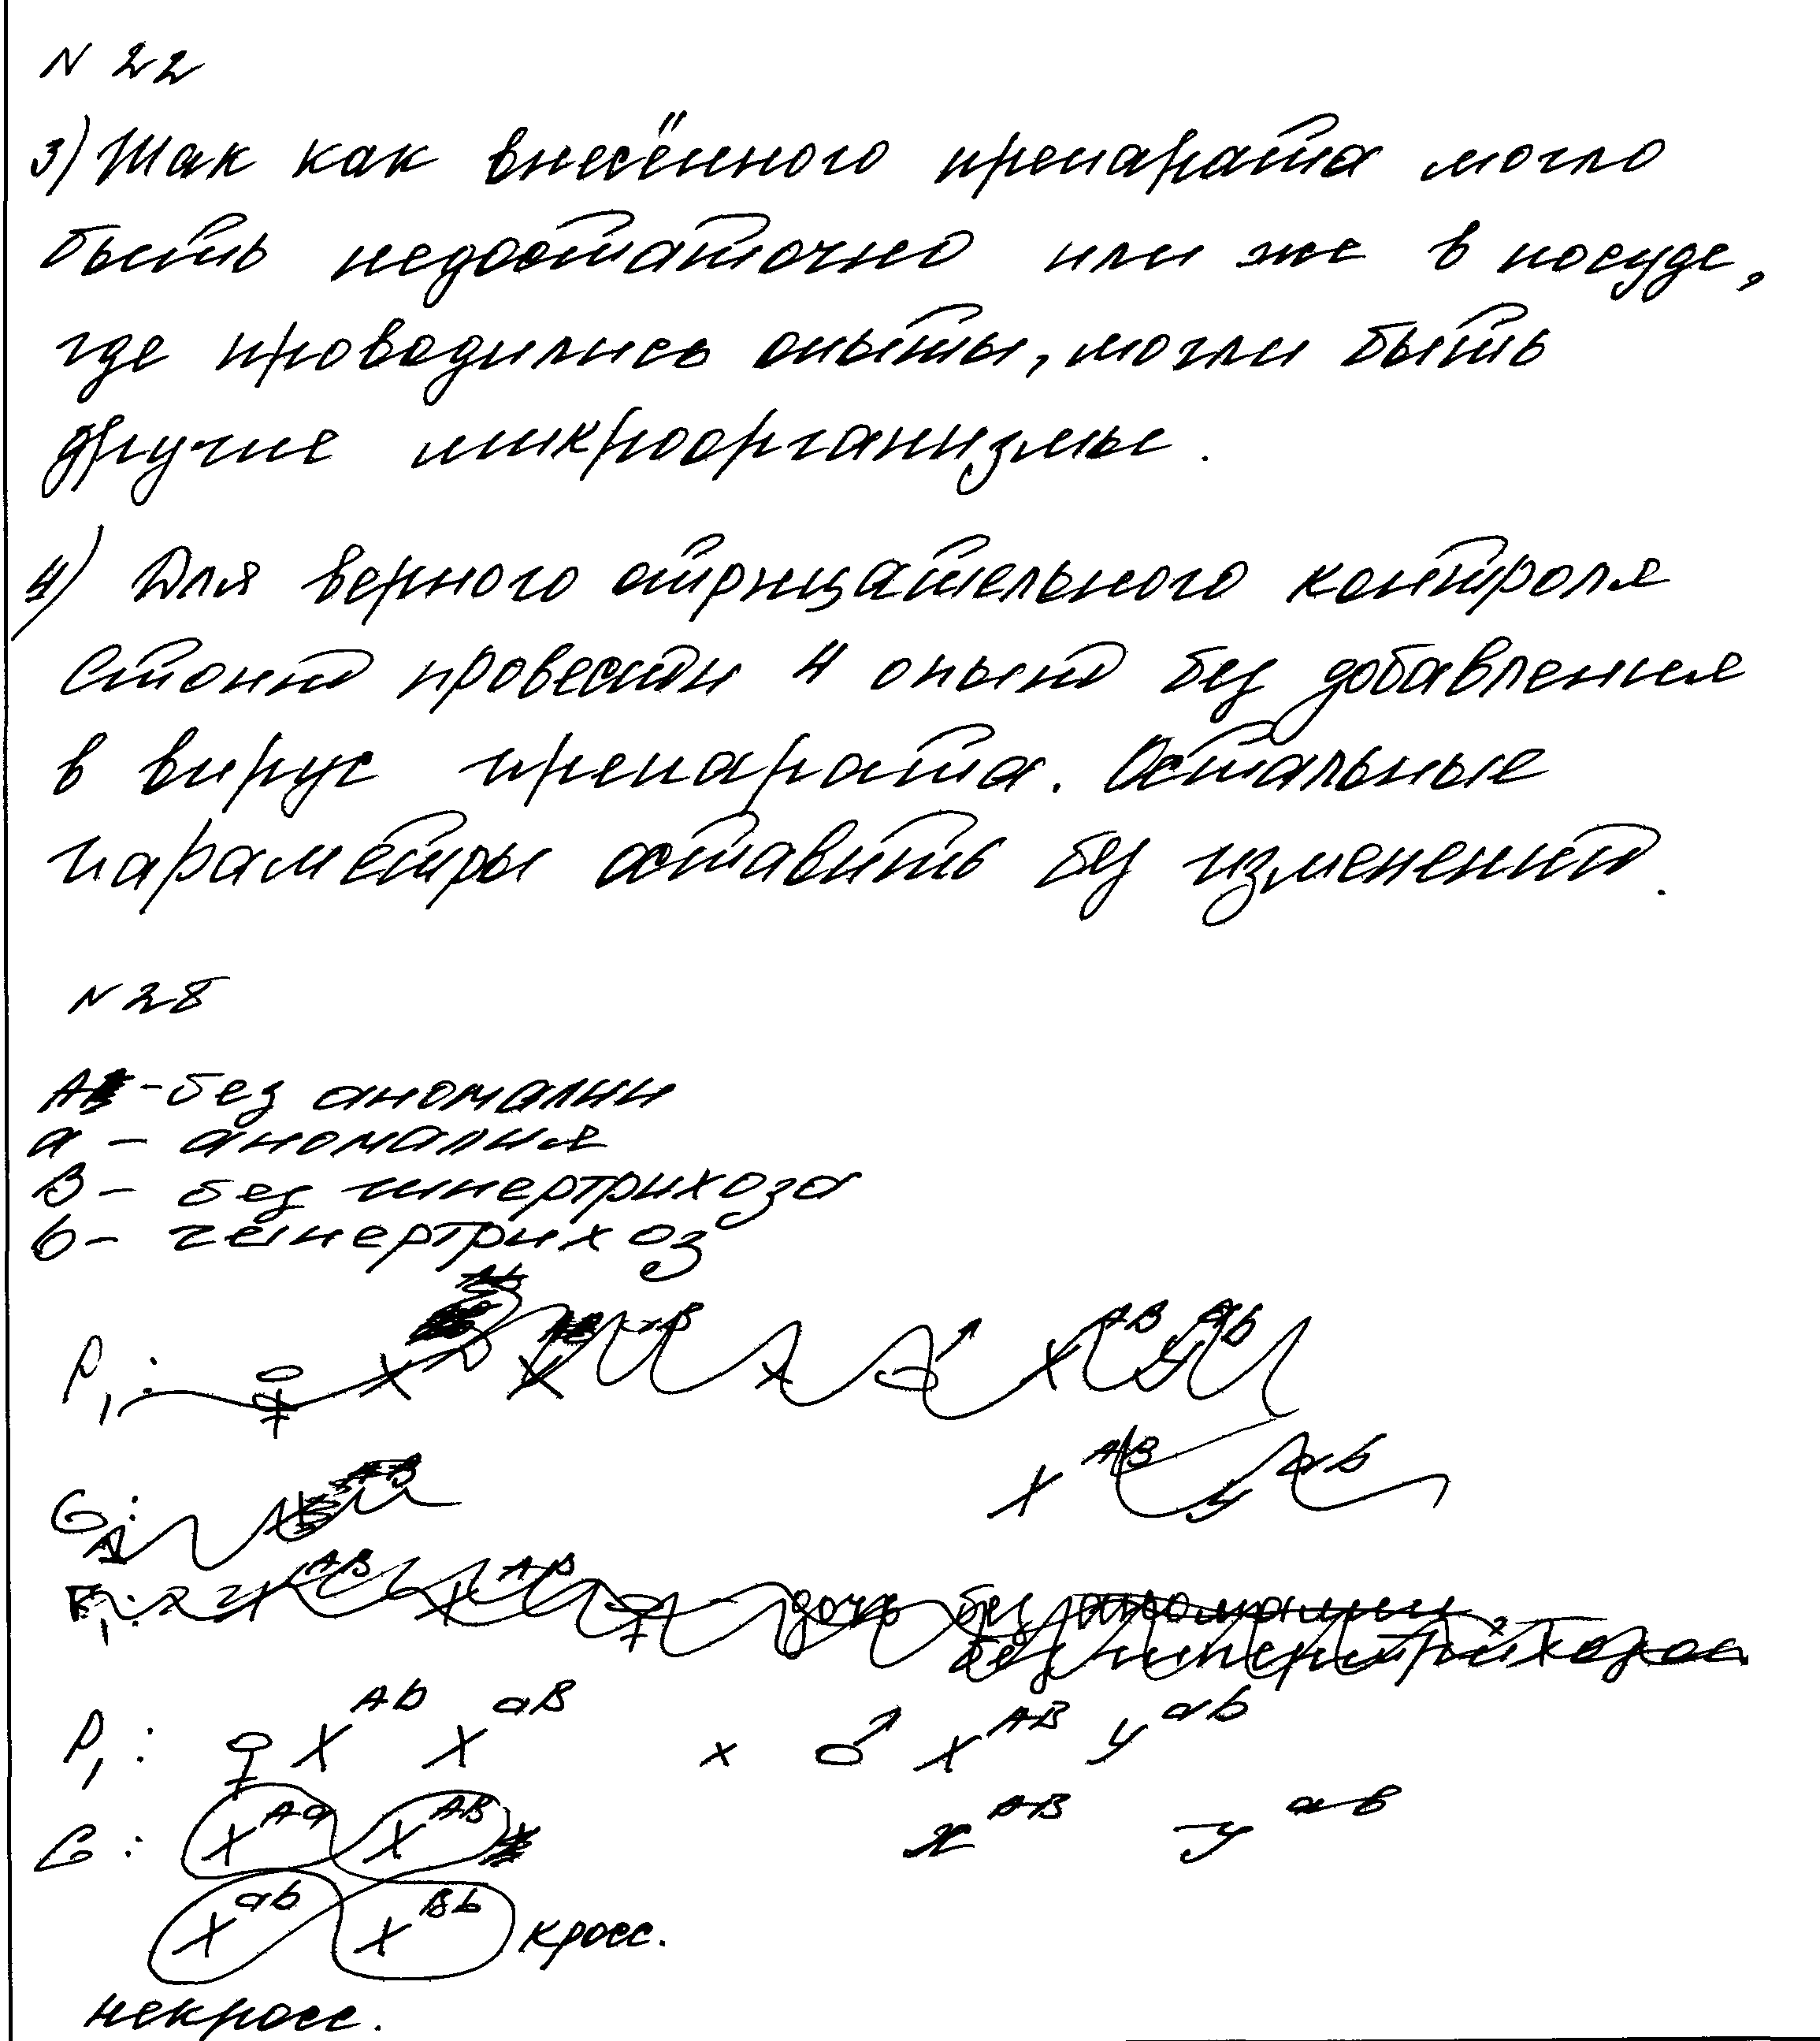 N 22
3) Так как внесённого препарата могло
быть недостаточно или же в посуде,
где проводились опыты, могли быть
другие микроорганизмы.
4) Для верного отрицательного контроля
Стоит провести 4 опыт без добавления
в вирус препарата. Остальные
параметры оставить без изменений.
N 28
A - без аномалии
a - аномалия
B - без гипертрихоза
b - гепертрихоз
P₁: ♀ X X x ♂ X^AB Y^ab
G: X^AB Y^ab
F₁: X^AB X^AB ♀ - дочь без аномалии,
без гипертрихоза
P₁: ♀ X^Ab X^aB x ♂ X^AB Y^ab
G: X^Aa X^AB X^AB Y^ab
X^ab X^Bb кросс.
некросс.